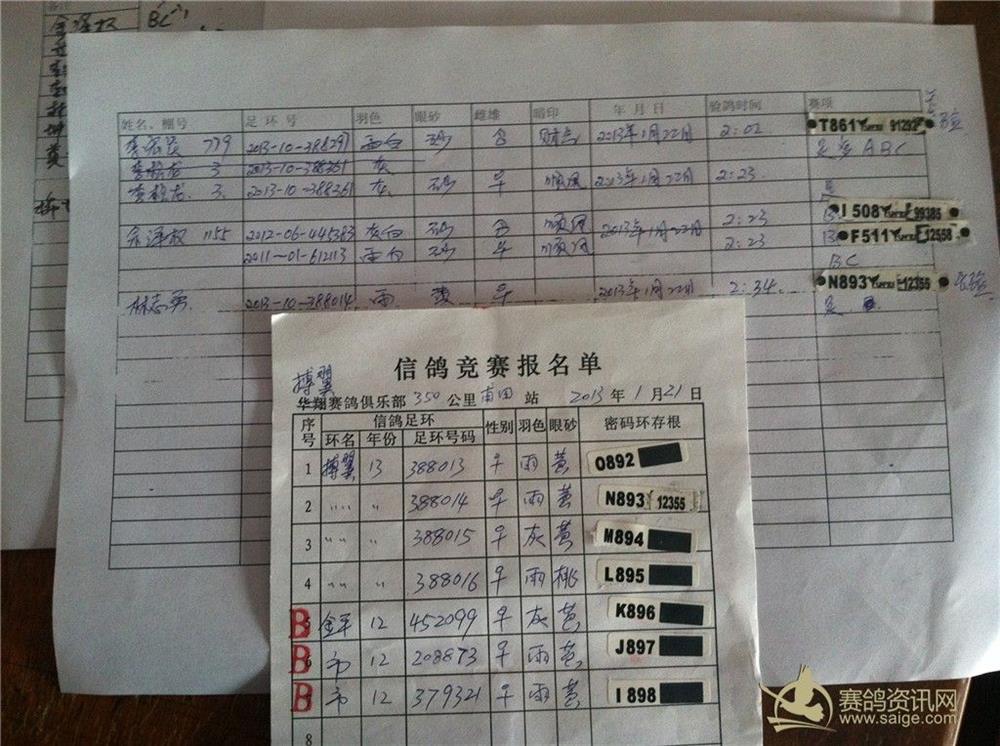 BC
姓名、棚号 足环号 羽色 眼砂 雌雄 暗印 年月日 验鸽时间 赛项
779 2013-10-386291 雨白 砂 2013年1月22日 2:02 T861 91292
ABC
李 龙 3 2013-10-388361 灰
李 龙 3. 2013-10-388361 灰 砂 早 顺风 2013年1月22日 2:23
I508 99385
余泽权 1155 2012-06-445383 灰白 砂 顺风 2013年1月22日 2:23 B F511 12558
2011-01-612113 雨白 砂 早 顺风 2:23
BC
林志勇 2013-10-388014 雨 黄 早 2013年1月22日 2:34 N893 12355
是
信鸽竞赛报名单
搏翼
华翔赛鸽俱乐部 350 公里 莆田 站 2013 年 1 月 21 日
序号 信鸽足环 性别 羽色 眼砂 密码环存根
环名 年份 足环号码
1 搏翼 13 388013 早 雨 黄 0892
2 〃 〃 388014 早 雨 黄 N893 12355
3 〃 〃 388015 早 灰 黄 M894
4 〃 〃 388016 早 雨 桃 L895
B 5 12 452099 早 灰 黄 K896
B 6 市 12 208873 早 雨 黄 J897
B 7 市 12 379321 早 雨 黄 I898
8
赛鸽资讯网
www.saige.com